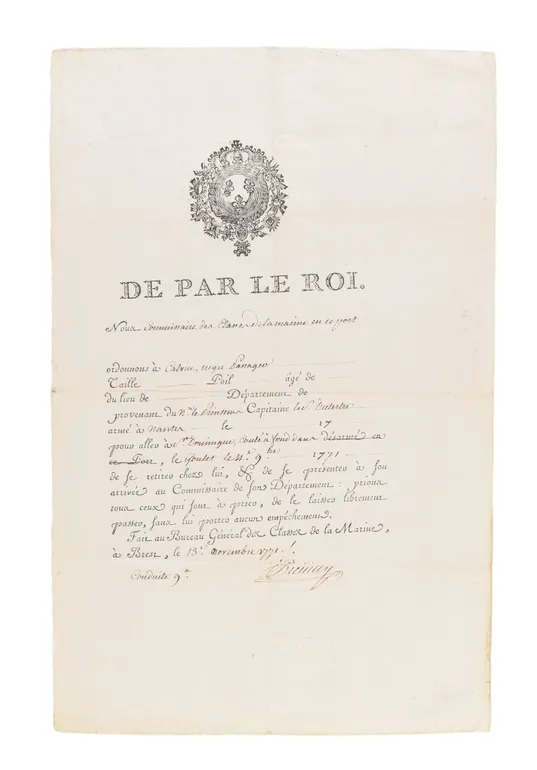 DE PAR LE ROI.
Nous Commissaire des Classes de la marine en ce port
ordonnons à negre Passager
Taille Poil âgé de
du lieu de Département de
provenant du N.re le Capitaine le S.r
armé à Nantes le 17
pour aller à S.t Domingue, Coulé à fond dans désarmé en
ce Port, le Goulet le 4.e 9.bre 1771
de se retirer chez lui, & de se présenter à son
arrivée au Commissaire de son Département : prions
tous ceux qui sont à prier, de le laisser librement
passer, sans lui porter aucun empêchement.
Fait au Bureau Général des Classes de la Marine,
à Brest, le 13.e Novembre 1771.
Conduite